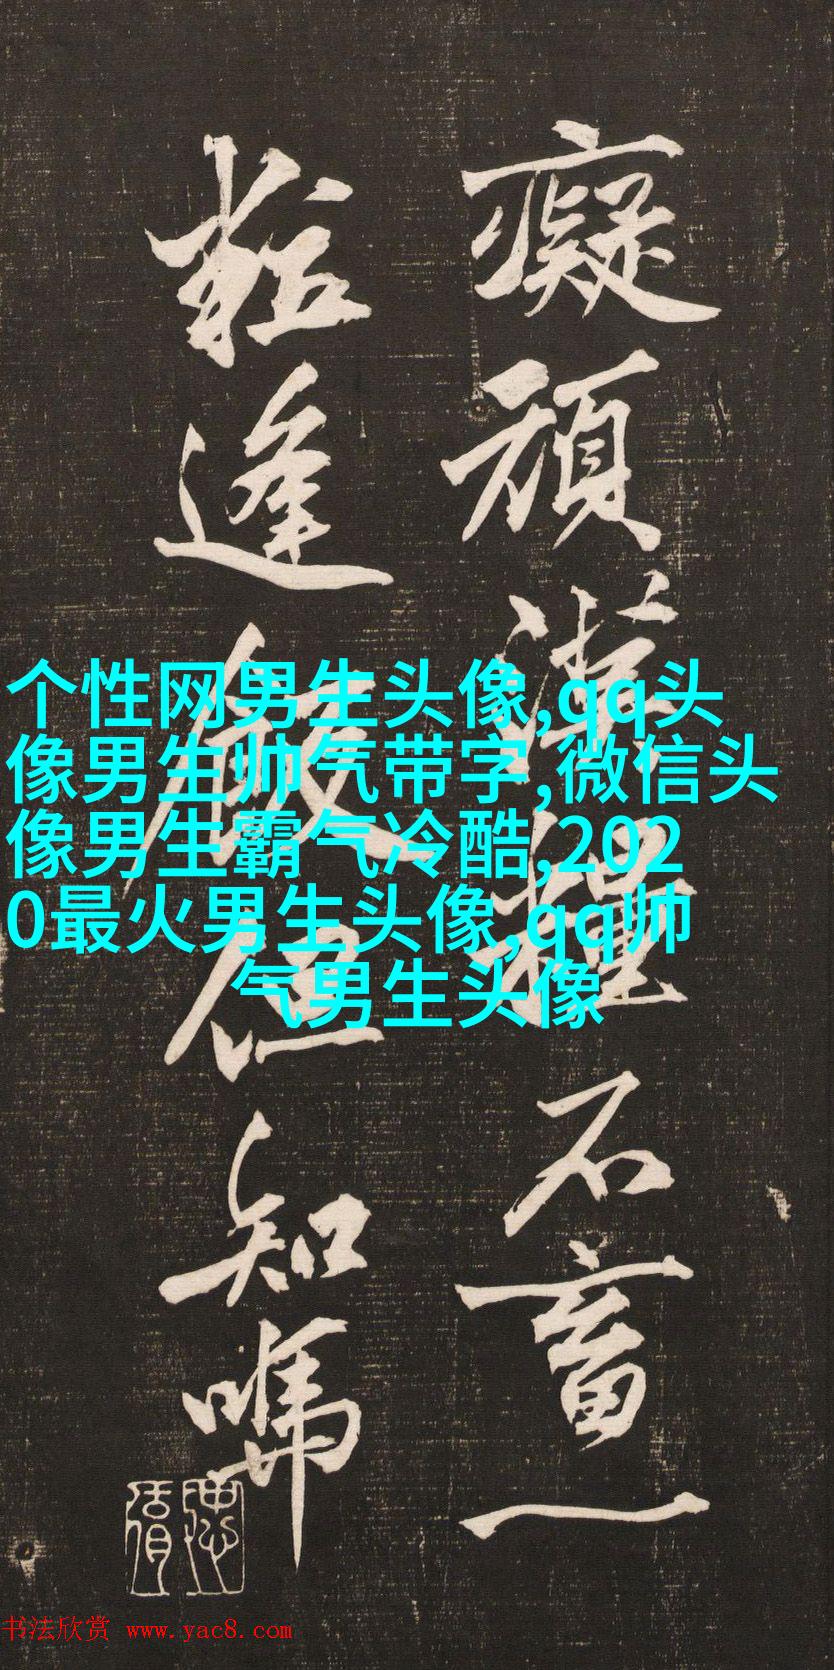 癡頑漢擔石畜一
粒逢
知嗎
个性网男生头像,qq头
像男生帅气带字,微信头
像男生霸气冷酷,202
0最火男生头像,qq帅
气男生头像
书法欣赏 www.yac8.com